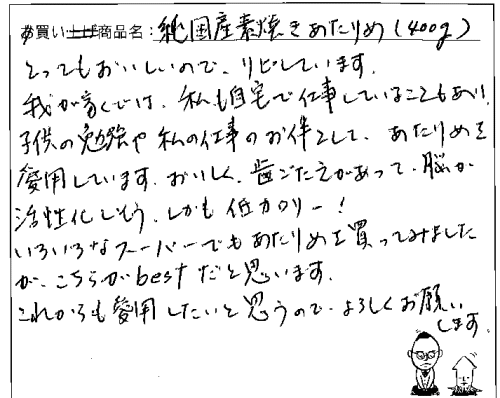 お買い上げ商品名:純国産素焼きあたりめ(400g)
とってもおいしいので、リピしています。
我が家では、私も自宅で仕事していることもあり、
子供の勉強や私の仕事のお伴として、あたりめを
愛用しています。おいしく、歯ごたえがあって、脳が
活性化しそう、しかも低カロリー!
いろいろなスーパーでもあたりめを買ってみました
が、こちらがbestだと思います。
これからも愛用したいと思うので、よろしくお願い
します。